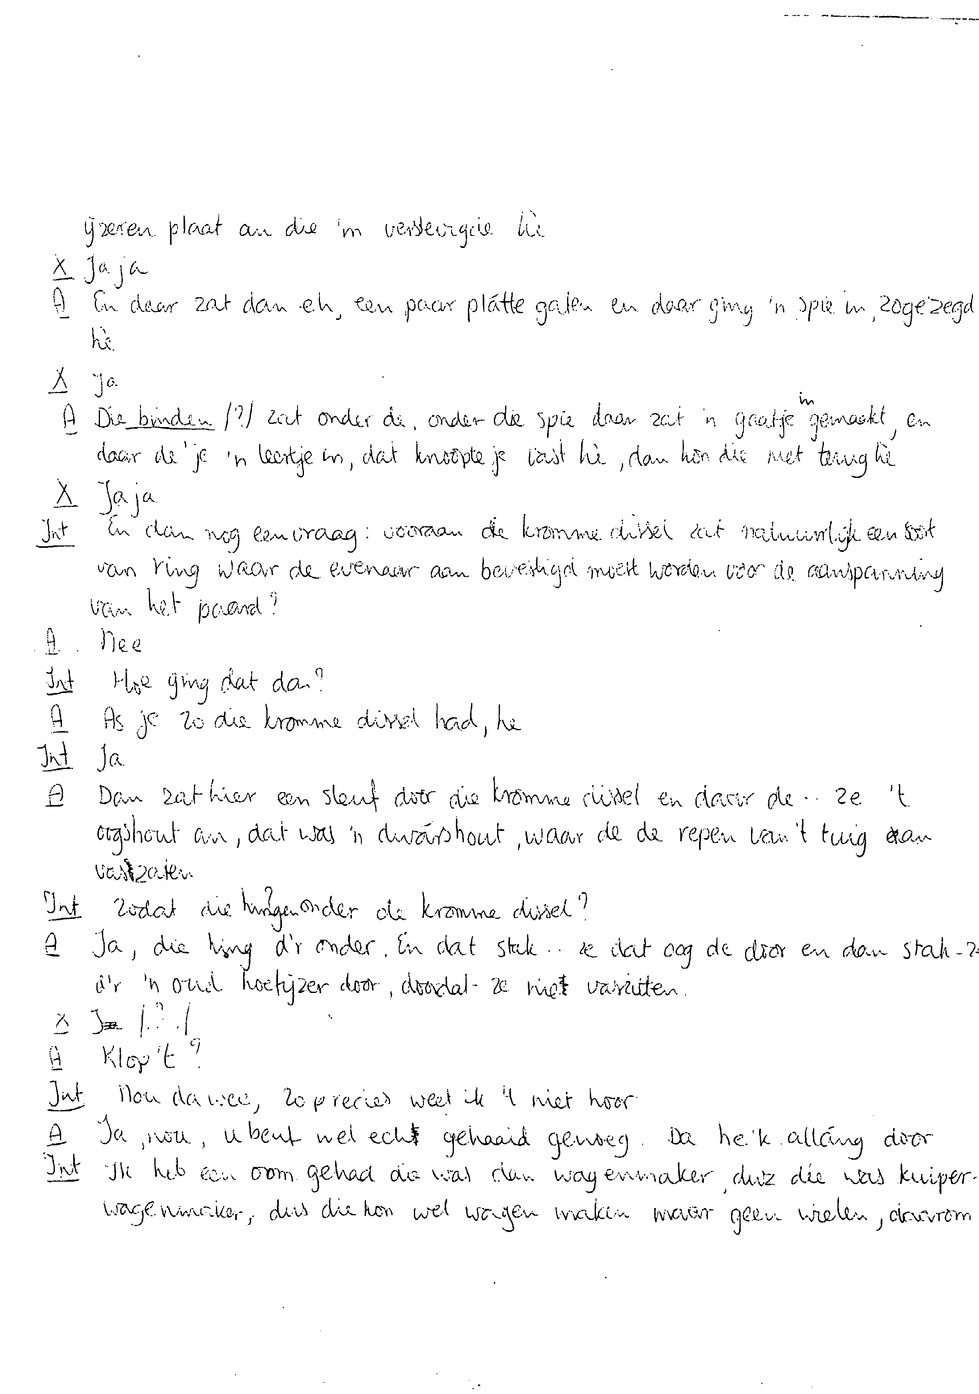 ijzeren plaat an die 'm verstevigde hè
X Ja ja
A En daar zat dan eh, een paar plátte gaten en daar ging 'n spie in, zogezegd
hè
X Ja
A Die binden /?/ zat onder de, onder die spie daar zat 'n gaatje in gemaakt, en
daar de' je 'n leertje in, dat knoopte je vast hè, dan kon die niet terug hè
X Ja ja
Int En dan nog een vraag: vooraan die kromme dissel zat natuurlijk een soort
van ring waar de evenaar aan bevestigd moest worden voor de aanspanning
van het paard?
A Nee
Int Hoe ging dat dan?
A As je zo die kromme dissel had, he
Int Ja
A Dan zat hier een sleuf door die kromme dissel en daar de .. ze 't
oogshout an, dat was 'n dwárshout, waar de de repen van 't tuig aan
vastzaten
Int Zodat die hingen onder de kromme dissel?
A Ja, die hing d'r onder. En dat stak .. ze dat oog de door en dan stak-ze
d'r 'n oud hoefijzer door, doordat ze niet vaszitten.
X /.?./
A Klop 't?
Int Nou da wee, zo precies weet ik 't niet hoor
A Ja, nou, u bent wel echt gehaaid genoeg. Da he 'k alláng door
Int Ik heb een oom gehad die was dan wagenmaker, duz die was kuiper-
wagenmaker, dus die kon wel wagen maken maar geen wielen, daarom